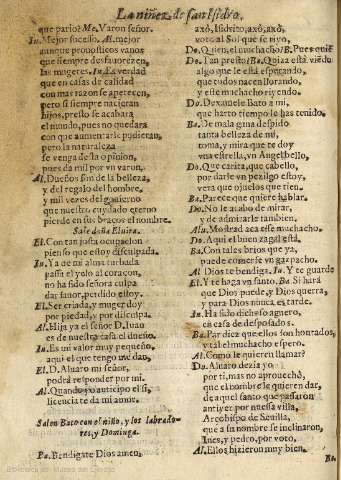 La niñez de san Isidro,
que pario? Me. Varon señor.
In. Mejor sucesso. Al. mejor
aunque pronosticos vanos
que siempre desfauorezen,
las mugeres. In. Es verdad
que en casas de calidad
con mas razon se apetecen,
pero si siempre nacieran
hijos, presto se acabara
el mundo, pues no quedara
con que aumentarle pudieran,
pero la naturaleza
se venga desta opinion,
pues da mil por vn varon.
Al. Dueños son de la belleza,
y del regalo del hombre,
y mil vezes del
que nuestro cuydado eterno
pierde en sus braços el nombre.
Sale doña Eluira.
El. Con tan justa ocupacion
pienso que estoy disculpada.
In. Ya de mi alma turbada
passò el yelo al coraçon,
no ha sido señora culpa
dar fauor, perdido estoy,
El. Ser criada, y muger doy
por piedad, y por disculpa.
Al. Hija ya el señor D. Iuan
es de nuestra casa el dueño.
In. Es mi valor muy pequeño,
aqui el que tengo me dan,
El. D. Aluaro mi señor,
podrà responder por mi.
Al. Quando yo anticipo el si,
licencia te da mi amor.
Salen Bato con el niño, y los labrado-
res, y Dominga.
Ba. Bendigate Dios amen,
axò, Isidrito; axò, axò,
voto al Sol que se riyo,
Do. Quien, el muchacho? B. Pues quiẽ
Do. Tan presto? Ba. Quiza està viẽdo
algo que le està esperando,
que todos nacen llorando,
y este muchacho riyendo.
Do. Dexamele Bato a mi,
que harto tiempo le has tenido.
Ba. De mala gana despido
tanta belleza de mi,
toma, y mira que te doy
vna estrella, vn Angel bello,
Do. Que carita, que cabello,
por darle vn pezilgo estoy,
vera que ojuelos que tien.
Ba. Parece que quiere hablar.
Do. No le acabo de mirar,
y de admirarle tambien,
Alu. Mostrad acà esse muchacho.
Do. Aqui el buen zagal està.
Ba. Con tales brios que ya,
puede comerse vn gazpacho.
Al. Dios te bendiga. In. Y te guarde
El. Y te haga vn santo. Ba. Si harà
que Dios puede, y Dios querra,
y para Dios nunca es tarde.
In. Ha sido dichoso aguero,
en casa de desposados.
Ba. Par diez que ellos son honrados,
y tal el muchacho espero.
Al. Como le quieren llamar?
Do. Aluaro dezia yo
por ti, mas no aprouechò,
que el nombre le quieren dar,
de aquel santo que passaron
antiyer por nuessa villa,
Arçobispo de Seuilla,
que a su nombre se inclinaron,
Ines, y pedro, por voto,
Al. Ellos hizieron muy bien.
Ba.